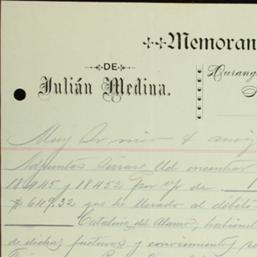 Memoran
DE
Julián Medina.
Durang
Muy Sr mio y ami
Adjuntas sirvase Ud encontrar
18445 y 18452 por v/ de
$649.32 que he llevado al débito
Catalina del Alamo, habiend
de dichas facturas y conocimiento